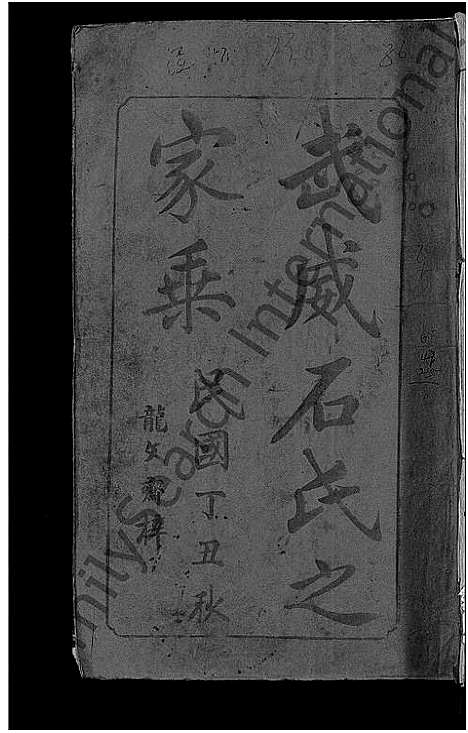 武威石氏之
家乗
民國丁丑秋
龍文齋梓
FamilySearch International